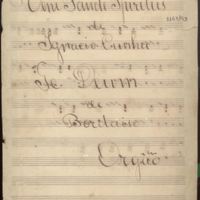 Veni Sancti Spiritus
de
Ignacio Cunha
Te Deum
de
Bordese
Orgão